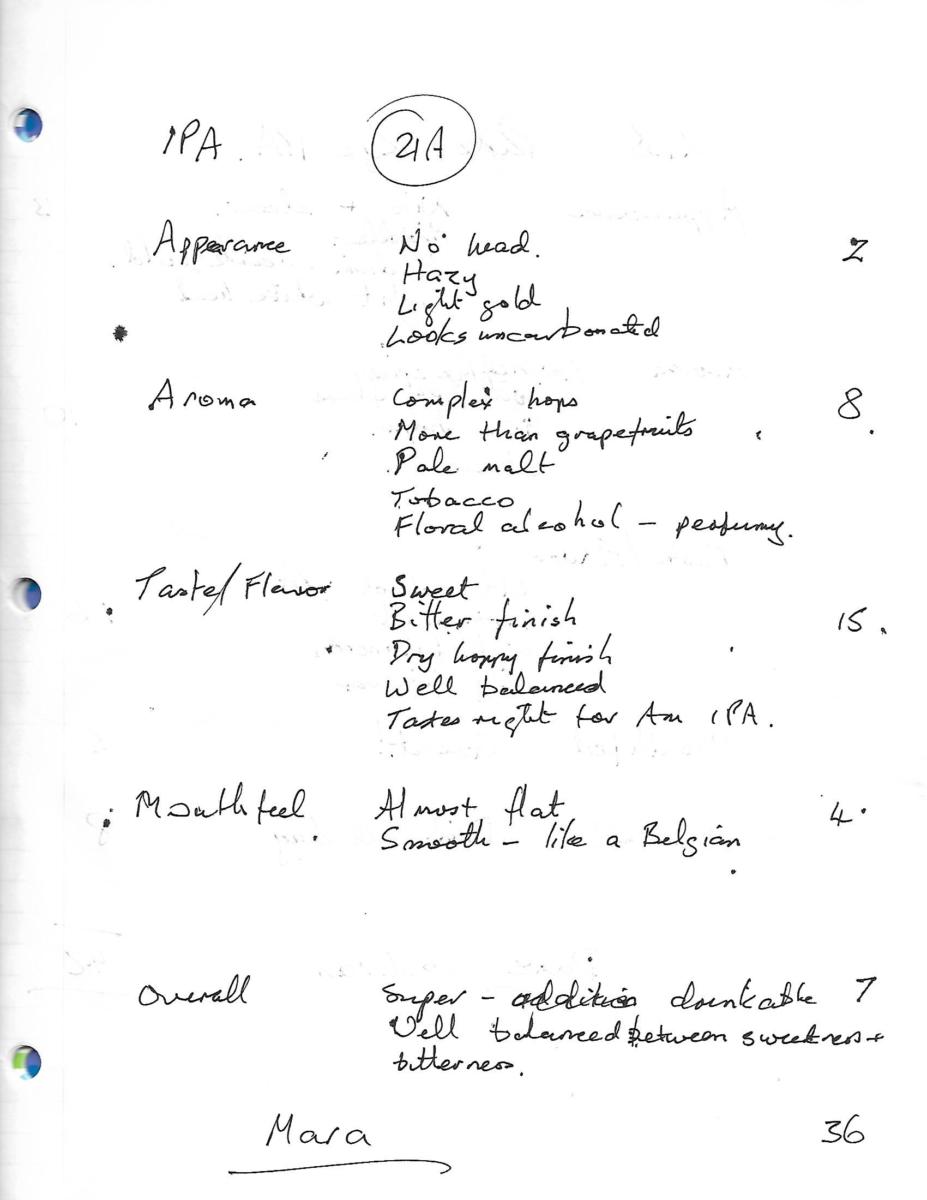 IPA. 21A
Apperance No head. 2
Hazy
Light gold
Looks uncarbonated
Aroma Complex hops 8
More than grapefruits
Pale malt
Tobacco
Floral alcohol - perfumy.
Taste/Flavor Sweet
Bitter finish 15
Dry hoppy finish
Well balanced
Tastes right for Am IPA.
Mouthfeel Almost flat 4
Smooth - like a Belgian
Overall Super - drinkable 7
Well balanced between sweetness +
bitterness.
Mara 36